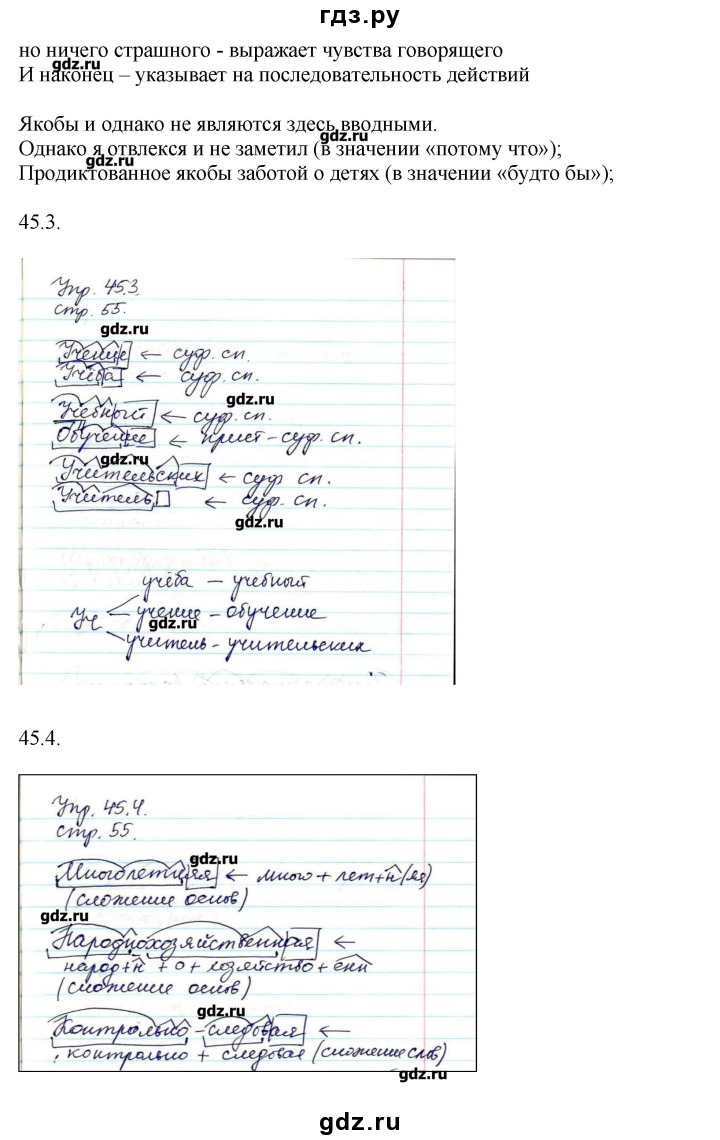 гдз.ру
но ничего страшного - выражает чувства говорящего
gdz.ru
И наконец – указывает на последовательность действий
Якобы и однако не являются здесь вводными.
gdz.ru
Однако я отвлекся и не заметил (в значении «потому что»);
gdz.ru
Продиктованное якобы заботой о детях (в значении «будто бы»);
45.3.
Упр. 45.3.
стр. 55.
gdz.ru
Учение ← суф. сп.
Учёба ← суф. сп.
gdz.ru
Учебный ← суф. сп.
Обучение ← прист-суф. сп.
gdz.ru
Учительских ← суф. сп.
Учитель ← суф. сп.
gdz.ru
учёба – учебный
Уч учение – обучение
gdz.ru
учитель - учительских
45.4.
Упр. 45.4.
стр. 55.
gdz.ru
Многолетняя ← много + лет + н (яя)
(сложение основ)
gdz.ru
Народнохозяйственная ←
народ + н + о + хозяйство + енн
(сложение основ)
gdz.ru
Контрольно - следовая ←
контрольно + следовая (сложение слов)
gdz.ru
gdz.ru